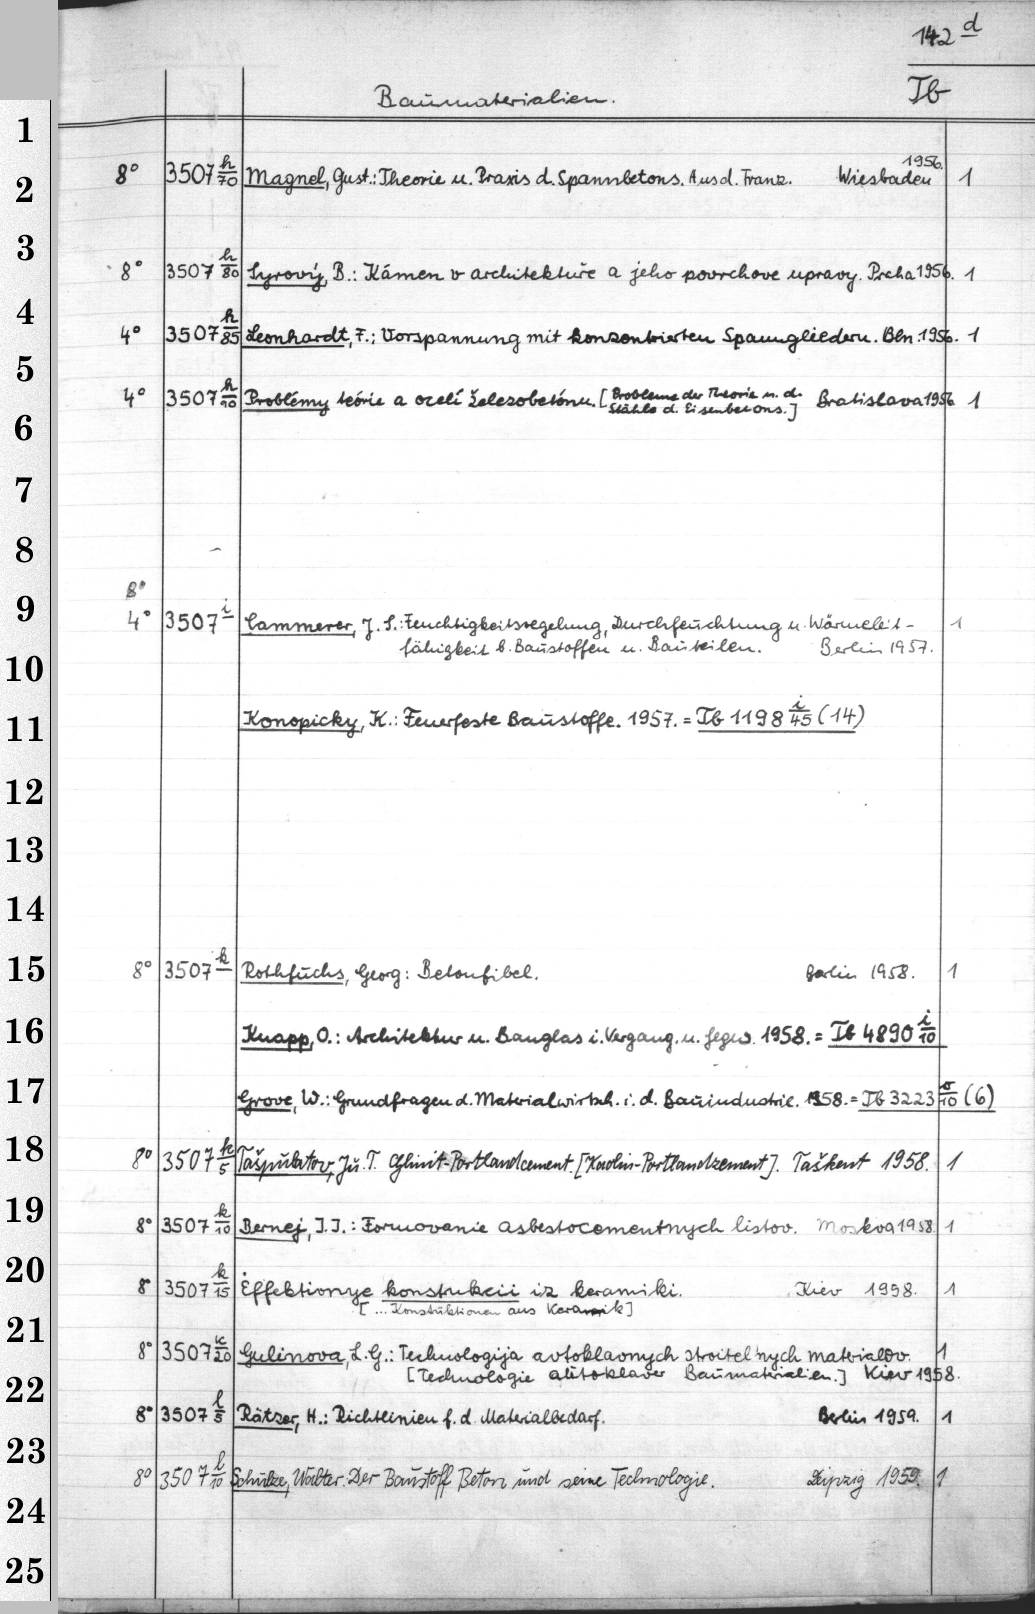 142 d
Baumaterialien. Ib
1
2
3
4
5
6
7
8
9
10
11
12
13
14
15
16
17
18
19
20
21
22
23
24
25
8° 3507 h/70 Magnel, Gust.: Theorie u. Praxis d. Spannbetons. Aus d. Franz. Wiesbaden 1956. 1
8° 3507 h/80 Syrový, B.: Kámen v architektuře a jeho povrchove upravy. Praha 1956. 1
4° 3507 h/85 Leonhardt, F.: Vorspannung mit konzentrierten Spanngliedern. Bln. 1956. 1
4° 3507 h/90 Problémy teórie a ocelí železobetónu. [Probleme der Theorie u. d. Bratislava 1956 1
Stähle d. Eisenbetons.]
8°
4° 3507 i Cammerer, J. S.: Feuchtigkeitsregelung, Durchfeuchtung u. Wärmeleit- 1
fähigkeit b. Baustoffen u. Bauteilen. Berlin 1957.
Konopicky, K.: Feuerfeste Baustoffe. 1957. = Ib 1198 i/45 (14)
8° 3507 k Rothfuchs, Georg: Betonfibel. Berlin 1958. 1
Knapp, O.: Architektur u. Bauglas i. Vergang. u. Gegw. 1958. = Ib 4890 i/10
Grove, W.: Grundfragen d. Materialwirtsch. i. d. Bauindustrie. 1958. = Ib 3223 v/10 (6)
8° 3507 k/5 Tašpulatov, Ju. T. Glinit-Portlandcement. [Kaolin-Portlandzement]. Taškent 1958. 1
8° 3507 k/10 Bernej, I. I.: Formovanie asbestocementnych listov. Moskva 1958. 1
8° 3507 k/15 Ėffektivnye konstrukcii iz keramiki. Kiev 1958. 1
[... Konstruktionen aus Keramik]
8° 3507 k/20 Gulinova, L. G.: Technologija avtoklavnych stroitel'nych materialov. 1
[Technologie autoklaver Baumaterialien.] Kiev 1958.
8° 3507 l/5 Rätzer, H.: Richtlinien f. d. Materialbedarf. Berlin 1959. 1
8° 3507 l/10 Schulze, Walter: Der Baustoff Beton und seine Technologie. Leipzig 1959. 1